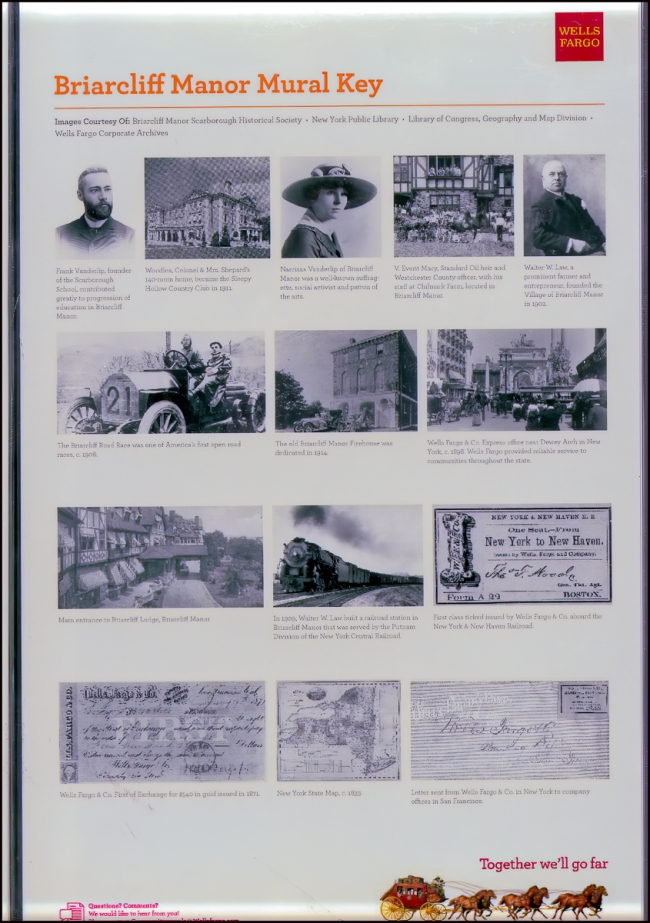 WELLS
FARGO
Briarcliff Manor Mural Key
Images Courtesy Of: Briarcliff Manor Scarborough Historical Society • New York Public Library • Library of Congress, Geography and Map Division •
Wells Fargo Corporate Archives
Frank Vanderlip, founder
of the Scarborough
School, contributed
greatly to progression of
education in Briarcliff
Manor.
Woodlea, Colonel & Mrs. Shepard's
140-room home, became the Sleepy
Hollow Country Club in 1911.
Narcissa Vanderlip of Briarcliff
Manor was a well-known suffrag-
ette, social activist and patron of
the arts.
V. Everit Macy, Standard Oil heir and
Westchester County officer, with his
staff at Chilmark Farm, located in
Briarcliff Manor.
Walter W. Law, a
prominent farmer and
entrepreneur, founded the
Village of Briarcliff Manor
in 1902.
21
The Briarcliff Road Race was one of America's first open road
races, c. 1908.
The old Briarcliff Manor Firehouse was
dedicated in 1914.
Wells Fargo & Co. Express office near Dewey Arch in New
York, c. 1898. Wells Fargo provided reliable service to
communities throughout the state.
Main entrance to Briarcliff Lodge, Briarcliff Manor
In 1909, Walter W. Law built a railroad station in
Briarcliff Manor that was served by the Putnam
Division of the New York Central Railroad.
NEW YORK & NEW HAVEN R. R.
One Seat—From
New York to New Haven.
Issued by Wells, Fargo and Company.
Form A 22
BOSTON.
First class ticket issued by Wells Fargo & Co. aboard the
New York & New Haven Railroad.
Wells Fargo & Co.
Wells Fargo & Co. First of Exchange for $540 in gold issued in 1871.
New York State Map, c. 1833
Letter sent from Wells Fargo & Co. in New York to company
offices in San Francisco.
Together we'll go far
Questions? Comments?
We would like to hear from you!